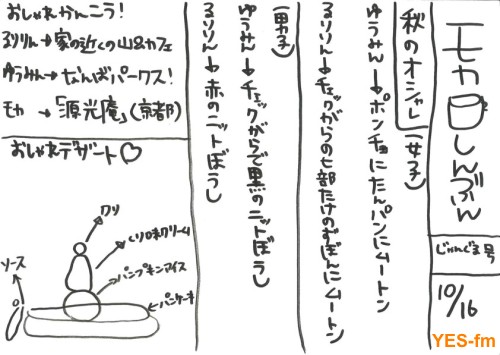 モカしんぶん
じゅんぐる号
10/16
秋のオシャレ（女子）
ゆうみん→ポンチョにたんパンにムートン
るりりん→チェックがらの七部たけのずぼんにムートン
（男子）
ゆうみん→チェックがらで黒のニットぼうし
るりりん→赤のニットぼうし
おしゃれかんこう！
るりりん→家の近くの山&カフェ
ゆうみん→なんばパークス！
モカ→「源光庵」（京都）
おしゃれデザート♡
クリ
くり味クリーム
パンプキンアイス
パンケーキ
ソース
YES-fm